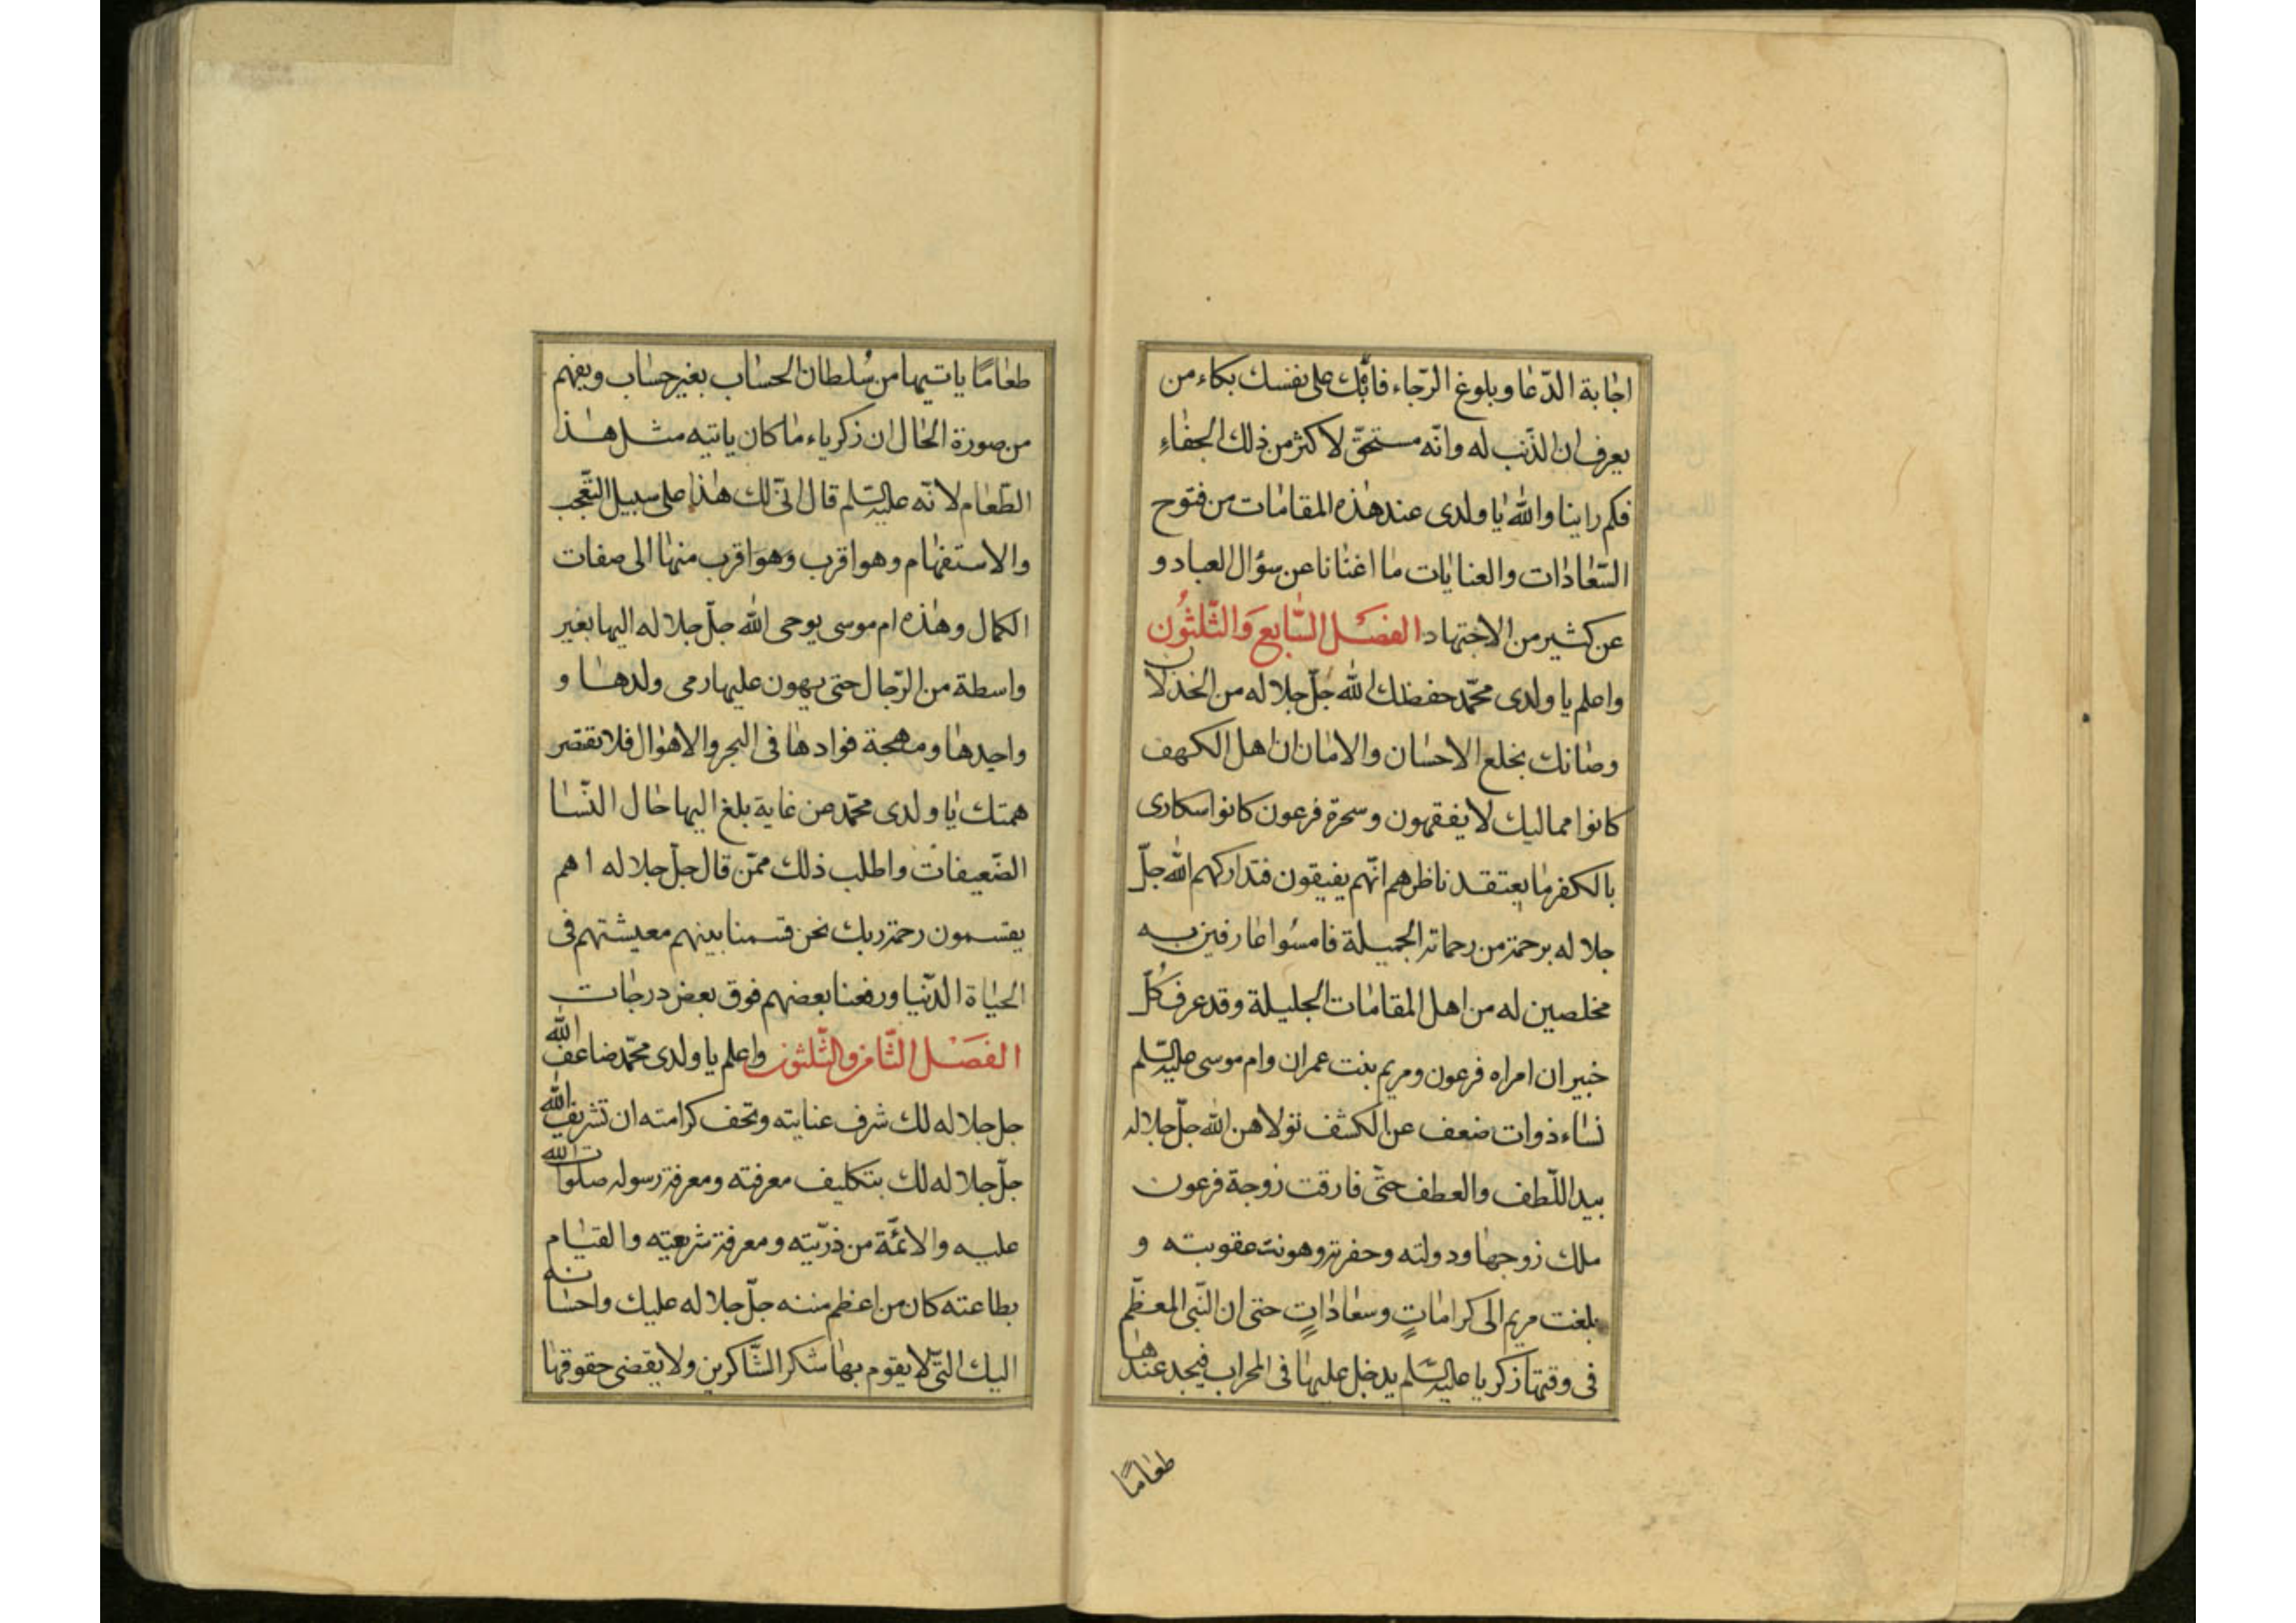 اجابة الدّعا وبلوغ الرّجاء فابك على نفسك بكاء من
يعرف ان الذّنب له وانّه مستحقّ لاكثر من ذلك الجفاء
فكم راينا والله يا ولدى عند هذه المقامات من فتوح
السّعادات والعنايات ما اغنانا عن سؤال العباد و
عن كثير من الاجتهاد الفصل السّابع والثّلثون
واعلم يا ولدى محمّد حفظك الله جلّ جلاله من الخذلان
وصانك بخلع الاحسان والامان ان اهل الكهف
كانوا مماليك لا يفقهون وسحرة فرعون كانوا سكارى
بالكفر ما يعتقد ناظرهم انّهم يفيقون فتداركهم الله جلّ
جلاله برحمة من رحماته الجميلة فامسُوا عارفين به
مخلصين له من اهل المقامات الجليلة وقد عرف كُلّ
خبير ان امراه فرعون ومريم بنت عمران وام موسى عليه السّلم
نساء ذوات ضعف عن الكشف تولاهن الله جلّ جلاله
بيد اللّطف والعطف حتّى فارقت زوجة فرعون
ملك زوجها ودولته وحفرته وهونت عقوبته و
بلغت مريم الى كراماتٍ وسعاداتٍ حتى ان النّبى المعظّم
فى وقتها زكريا عليه السّلم يدخل عليها فى المحراب فيجد عندها
طعامًا
طعامًا ياتيها من سُلطان الحساب بغير حساب ويفهم
من صورة الحال ان زكرياء ما كان ياتيه مثل هذا
الطّعام لانّه عليه السّلم قال انّى لك هذا على سبيل التّعجب
والاستفهام وهو اقرب وهو اقرب منها الى صفات
الكمال وهذه ام موسى يوحى الله جلّ جلاله اليها بغير
واسطة من الرّجال حتى يهون عليها رمى ولدها و
واحيدها ومهجة فوادها فى البحر والاهوال فلا تقصّر
همتك يا ولدى محمّد عن غاية بلغ اليها حال النّسا
الضّعيفات واطلب ذلك ممّن قال جلّ جلاله اهم
يقسمون رحمة ربك نحن قسمنا بينهم معيشتهم فى
الحياة الدّنيا ورفعنا بعضهم فوق بعض درجات
الفصل الثّامن والثّلثون واعلم يا ولدى محمّد ضاعف الله
جل جلاله لك شرف عنايته وتحف كرامته ان تشريف الله
جلّ جلاله لك بتكليف معرفته ومعرفة رسوله صلوات الله
عليه والائمّة من ذرّيته ومعرفة شريعته والقيام
بطاعته كان من اعظم مننه جلّ جلاله عليك واحسانه
اليك الّتى لا يقوم بها شكر الشّاكرين ولا يقضى حقوقها